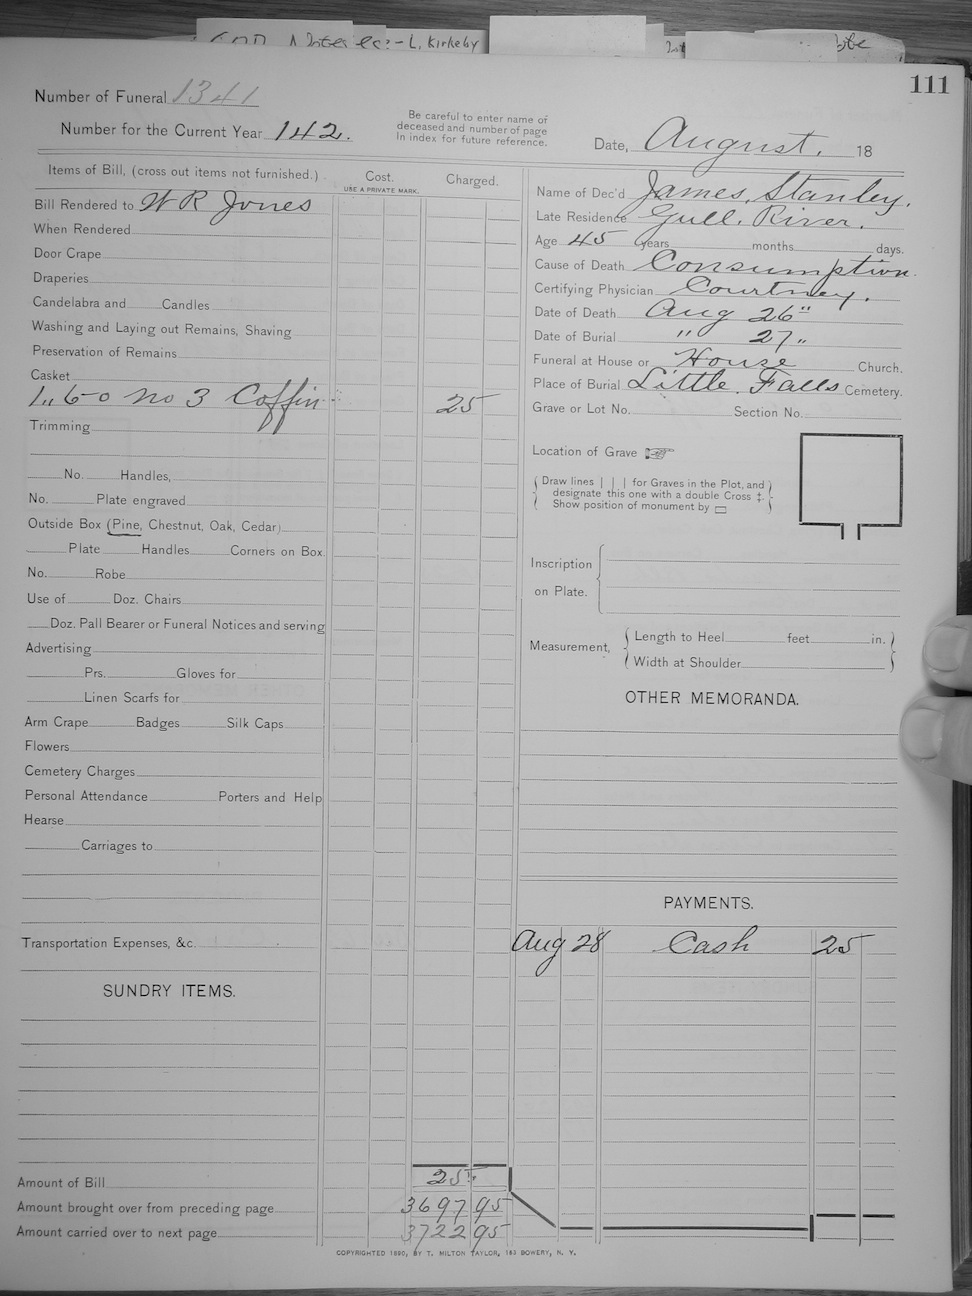 L. Kirkeby
111
Number of Funeral 1341
Number for the Current Year 142.
Be careful to enter name of
deceased and number of page
in index for future reference.
Date, August. 18
Items of Bill, (cross out items not furnished.)
Cost.
USE A PRIVATE MARK.
Charged.
Bill Rendered to W R Jones
When Rendered
Door Crape
Draperies
Candelabra and Candles
Washing and Laying out Remains, Shaving
Preservation of Remains
Casket
1,, 6-0 No 3 Coffin 25
Trimming
No. Handles,
No. Plate engraved
Outside Box (Pine, Chestnut, Oak, Cedar)
Plate Handles Corners on Box.
No. Robe
Use of Doz. Chairs
Doz. Pall Bearer or Funeral Notices and serving
Advertising
Prs. Gloves for
Linen Scarfs for
Arm Crape Badges Silk Caps
Flowers
Cemetery Charges
Personal Attendance Porters and Help
Hearse
Carriages to
Transportation Expenses, &c.
SUNDRY ITEMS.
Amount of Bill 25
Amount brought over from preceding page 3697 95
Amount carried over to next page 3722 95
Name of Dec'd James, Stanley.
Late Residence Gull. River.
Age 45 years months days.
Cause of Death Consumption.
Certifying Physician Courtney.
Date of Death Aug 26"
Date of Burial " 27"
Funeral at House or House Church.
Place of Burial Little. Falls Cemetery.
Grave or Lot No. Section No.
Location of Grave ☞
Draw lines | | | for Graves in the Plot, and
designate this one with a double Cross ‡.
Show position of monument by ▭
Inscription
on Plate.
Measurement,
Length to Heel feet in.
Width at Shoulder
OTHER MEMORANDA.
PAYMENTS.
Aug 28 Cash 25
COPYRIGHTED 1890, BY T. MILTON TAYLOR, 163 BOWERY, N. Y.